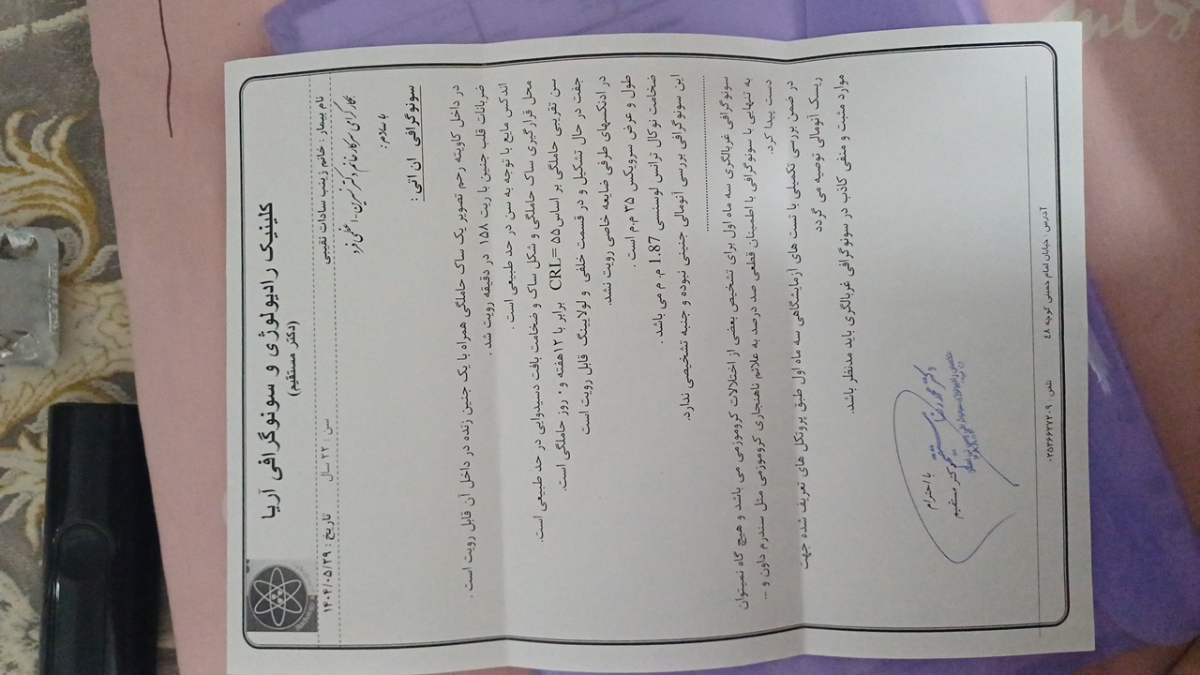 کلینیک رادیولوژی و سونوگرافی آریا
(دکتر مستقیم)
نام بیمار : خانم زینب سادات نقیبی سن : ۲۲ سال تاریخ : ۱۴۰۴/۰۵/۲۹
با سلام :
سونوگرافی ان اتی :
در داخل کاویته رحم تصویر یک ساک حاملگی همراه با یک جنین زنده در داخل آن قابل رویت است .
ضربانات قلب جنین با ریت ۱۵۸ در دقیقه رویت شد .
اندکس مایع با توجه به سن در حد طبیعی است .
محل قرارگیری ساک حاملگی و شکل ساک و ضخامت بافت دسیدوایی در حد طبیعی است.
سن تقریبی حاملگی بر اساس CRL= ۵۵ برابر با ۱۲هفته و ۰ روز حاملگی است.
جفت در حال تشکیل و در قسمت خلفی و لولایینگ قابل رویت است
در ادنکسهای طرفی ضایعه خاصی رویت نشد.
طول و عرض سرویکس ۳۵ م.م است .
ضخامت نوکال ترانس لوسنسی 1.87 م.م می باشد .
این سونوگرافی بررسی آنومالی جنینی نبوده و جنبه تشخیصی ندارد.
سونوگرافی غربالگری سه ماه اول برای تشخیص بعضی از اختلالات کروموزمی می باشد و هیچ گاه نمیتوان
به تنهایی با سونوگرافی با اطمینان قطعی صد درصد به علائم ناهنجاری کروموزمی مثل سندرم داون و ...
دست پیدا کرد.
در ضمن بررسی تکمیلی با تست های آزمایشگاهی سه ماه اول طبق پروتکل های تعریف شده جهت
ریسک آنومالی توصیه می گردد
موارد مثبت و منفی کاذب در سونوگرافی غربالگری باید مدنظر باشد.
با احترام
دکتر مستقیم
آدرس : خیابان امام خمینی کوچه ۴۸ تلفن : ۰۲۵۳۶۶۳۷۲۰۹